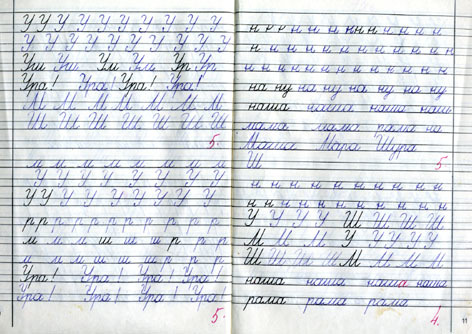 У У У У У У У У У У У
У У У У У У У У У У У
Уш Уш Ум Ум Ур Ур
Ура! Ура! Ура! Ура!
М М М М М М М
Ш Ш Ш Ш Ш Ш Ш
5.
м м м м м м м м м
У У У У У У У У
У У У У У У У У У
р р р р р р р р р р р
м м м ш ш ш р р р
м м м ш ш ш р р р р
Ура! Ура! Ура! Ура!
Ура! Ура! Ура! Ура!
5.
н н н н н н н н н н н н
н н н н н н н н н н н н
н н н н н н н н н н н н
на ну на ну на ну на ну
наша наша наша наш
мама мама рама на
Маша Мара Шура
Ш
5
н н н н н н н н н н н
н н н н н н н н н н н
У У У У Ш Ш Ш Ш
М М М М У У У У У
Ш Ш Ш Ш М М М М М
наша наша наша наша
рама рама рама
4.
11